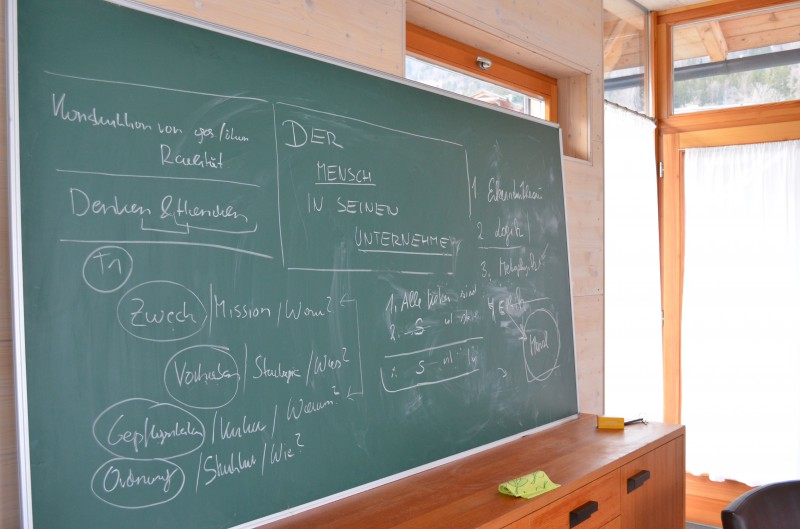 Konstruktion von
Realität
Denken & Handeln
DER
MENSCH
IN SEINEN
UNTERNEHME
Zweck / Mission / Wozu?
Vorhaben / Strategie / Was?
Gepflogenheiten / Kultur / Warum?
Ordnung / Struktur / Wie?
1
2 Logik
3. Metaphysik
4 Ethik
Moral
1. Alle sind
2. S ist
∴ S ist